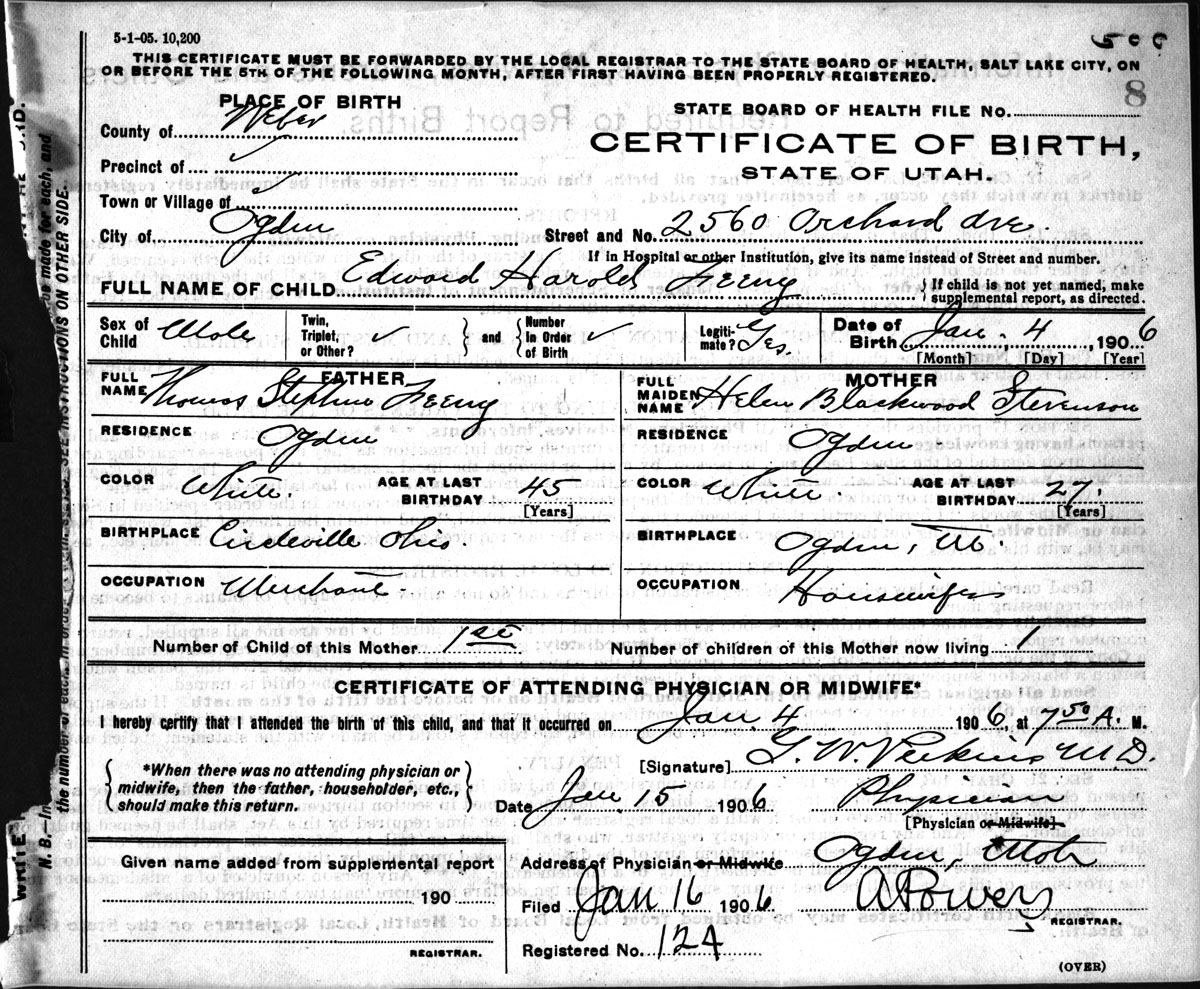 5-1-05. 10,200
THIS CERTIFICATE MUST BE FORWARDED BY THE LOCAL REGISTRAR TO THE STATE BOARD OF HEALTH, SALT LAKE CITY, ON
OR BEFORE THE 5TH OF THE FOLLOWING MONTH, AFTER FIRST HAVING BEEN PROPERLY REGISTERED.
8
PLACE OF BIRTH
STATE BOARD OF HEALTH FILE No.
County of Weber
CERTIFICATE OF BIRTH,
Precinct of ✓
STATE OF UTAH.
Town or Village of ✓
City of Ogden
Street and No. 2560 Orchard Ave
If in Hospital or other Institution, give its name instead of Street and number.
FULL NAME OF CHILD Edward Harold
} If child is not yet named, make
supplemental report, as directed.
Sex of Child Male
Twin, Triplet, or Other? ✓
} and {
Number In Order of Birth ✓
Legiti- mate? Yes.
Date of Birth Jan. 4, 1906
[Month] [Day] [Year]
FATHER
MOTHER
FULL NAME Thomas Stephen
FULL MAIDEN NAME Helen Blackwood Stevenson
RESIDENCE Ogden
RESIDENCE Ogden
COLOR White. AGE AT LAST BIRTHDAY 45 [Years]
COLOR White AGE AT LAST BIRTHDAY 27. [Years]
BIRTHPLACE Circleville Ohio.
BIRTHPLACE Ogden, Ut.
OCCUPATION Merchant.
OCCUPATION Housewife
Number of Child of this Mother 1st
Number of children of this Mother now living 1
CERTIFICATE OF ATTENDING PHYSICIAN OR MIDWIFE*
I hereby certify that I attended the birth of this child, and that it occurred on Jan 4 1906, at 7 50 A. M.
{ *When there was no attending physician or
midwife, then the father, householder, etc.,
should make this return. }
[Signature] Perkins M D.
Date Jan 15 1906 Physician
[Physician or Midwife]
Given name added from supplemental report
190
REGISTRAR.
Address of Physician or Midwife Ogden, Utah
Filed Jan 16 1906. A Powers
REGISTRAR.
Registered No. 124
(OVER)
be made for each, and
the number of each, in order of birth, stated. SEE INSTRUCTIONS ON OTHER SIDE.
N. B.—In